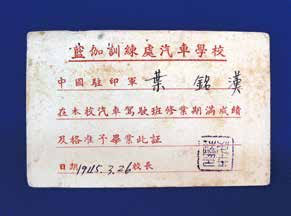 藍伽訓練處汽車學校
中國駐印軍 葉銘漢
在本校汽車駕駛班修業期滿成績
及格准予畢業此証
日期1945.3.26校長